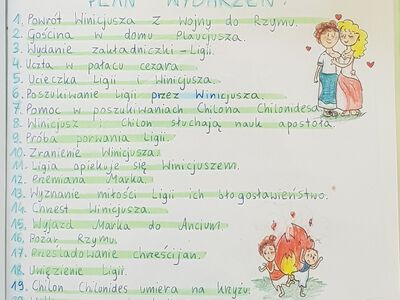 PLAN WYDARZEŃ:
1. Powrót Winicjusza z wojny do Rzymu.
2. Gościna w domu Plaucjusza.
3. Wydanie zakładniczki - Ligii.
4. Uczta w pałacu cezara.
5. Ucieczka Ligii i Winicjusza.
6. Poszukiwanie Ligii przez Winicjusza.
7. Pomoc w poszukiwaniach Chilona Chilonidesa
8. Winicjusz i Chilon słuchają nauk apostoła.
9. Próba porwania Ligii.
10. Zranienie Winicjusza.
11. Ligia opiekuje się Winicjuszem.
12. Przemiana Marka.
13. Wyznanie miłości Ligii ich błogosławieństwo.
14. Chrzest Winicjusza.
15. Wyjazd Marka do Ancium.
16. Pożar Rzymu.
17. Prześladowanie chrześcijan.
18. Uwięzienie Ligii.
19. Chilon Chilonides umiera na krzyżu.